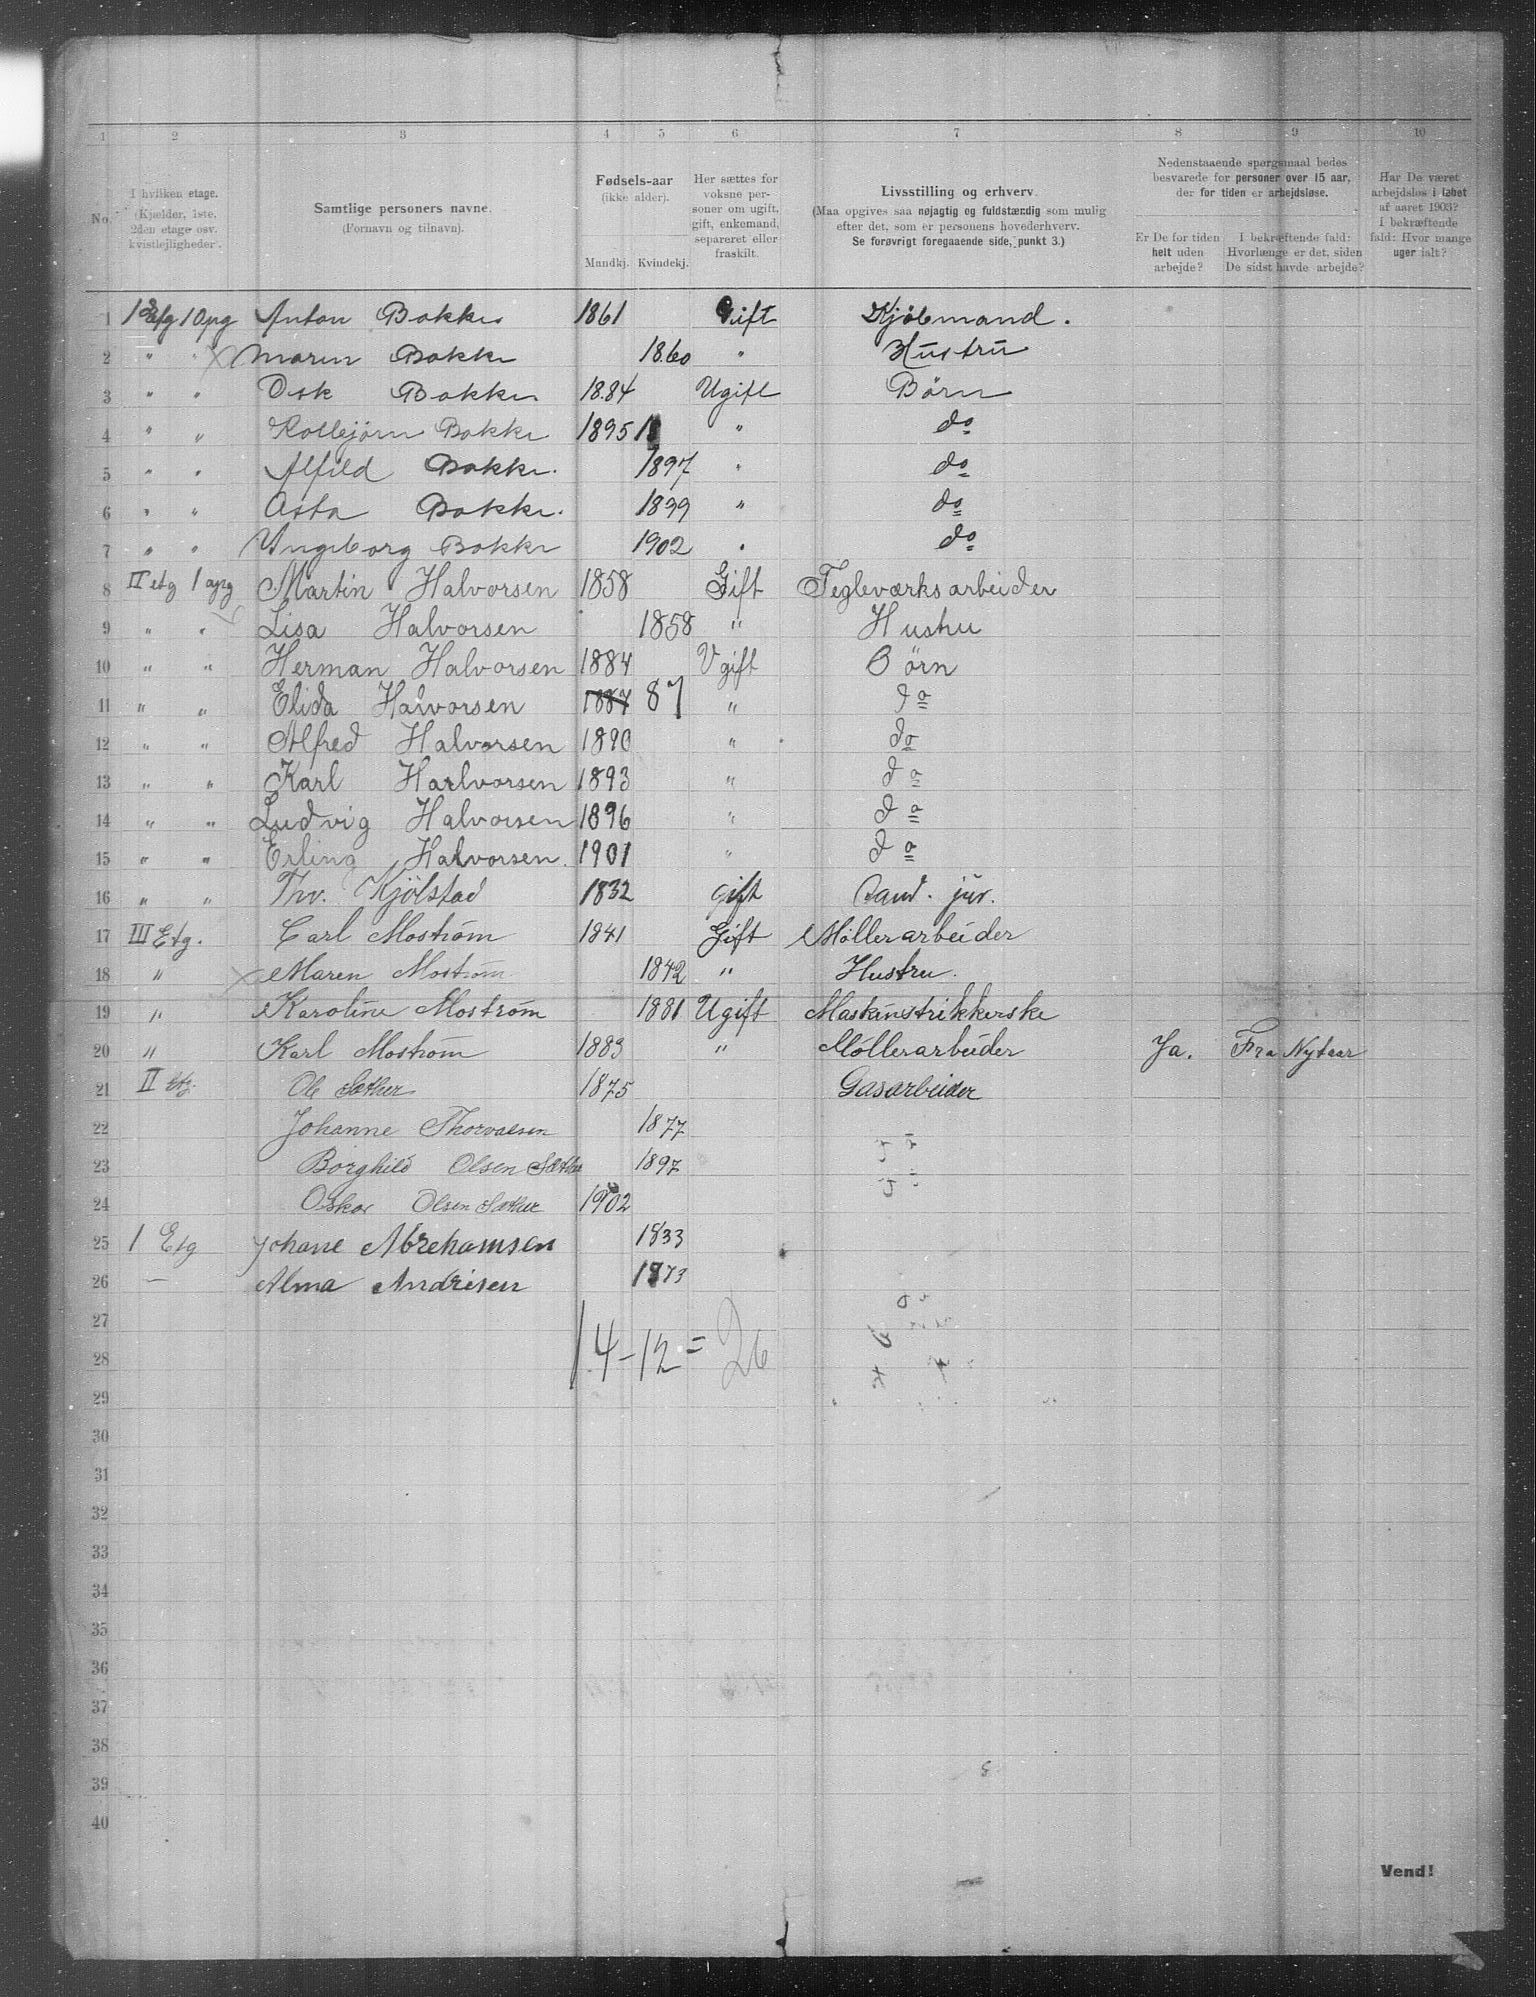 1 2 3 4 5 6 7 8 9 10
No.
I hvilken etage. (Kjælder, 1ste, 2den etage osv. kvistlejligheder.
Samtlige personers navne. (Fornavn og tilnavn).
Fødsels-aar (ikke alder). Mandkj. Kvindekj.
Her sættes for voksne personer om ugift, gift, enkemand, separeret eller fraskilt.
Livsstilling og erhverv. (Maa opgives saa nøjagtig og fuldstændig som mulig efter det, som er personens hovederhverv. Se forøvrigt foregaaende side, punkt 3.)
Nedenstaaende spørgsmaal bedes besvarede for personer over 15 aar, der for tiden er arbejdsløse.
Er De for tiden helt uden arbejde?
I bekræftende fald: Hvorlænge er det, siden De sidst havde arbejde?
Har De været arbejdsløs i løbet af aaret 1903? I bekræftende fald: Hvor mange uger ialt?
1 1 Etg 1 Opg Anton Bakke 1861 Gift Kjøbmand.
2 " " Maren Bakke 1860 " Hustru
3 " " Osk Bakke 1884 Ugift Børn
4 " " Bakke 1895 " do
5 " " Alfild Bakke. 1897 " do
6 " " Asta Bakke. 1899 " do
7 " " Yngeborg Bakke 1902 " do
8 II etg 1 opg Martin Halvorsen 1858 Gift Tegleværksarbeider
9 " " Lisa Halvorsen 1858 " Hustru
10 " " Herman Halvorsen 1884 Ugift Børn
11 " " Elida Halvorsen 1887 87 " do
12 " " Alfred Halvorsen 1890 " do
13 " " Karl Harlvorsen 1893 " do
14 " " Ludvig Halvorsen 1896 " do
15 " " Erling Halvorsen. 1901 " do
16 " " Thv. Kjölstad 1832 gift Cand. jur.
17 III Etg. Carl Moström 1841 Gift Møllerarbeider
18 " Maren Moström 1842 " Hustru.
19 " Karoline Moström 1881 Ugift Maskinstrikkerske
20 " Karl Moström 1883 " Møllerarbeider Ja. Fra Nytaar
21 II etg. Ole Sæther 1875 Gasarbeider
22 Johanne Thorvalsen 1877
23 Borghild Olsen Sæther 1897
24 Oskar Olsen Sæther 1902
25 1 Etg Johane Abrehamsen 1833
26 — Alma Andrisen 1873
27
28 14-12=26
29
30
31
32
33
34
35
36
37
38
39
40
Vend!